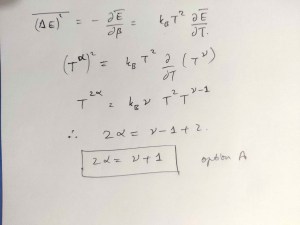 \overline{(ΔE)^2} = - ∂Ē/∂β = k_B T² ∂Ē/∂T.
(T^α)² = k_B T² ∂/∂T (T^ν)
T^{2α} = k_B ν T² T^{ν-1}
∴ 2α = ν-1+2.
2α = ν+1 option A